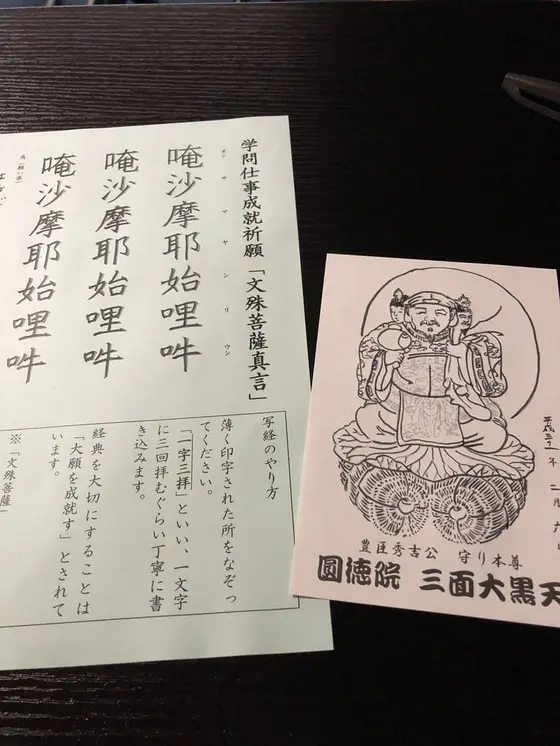 学問仕事成就祈願「文殊菩薩真言」
オン サ マ ヤ シ リ ウン
唵沙摩耶始哩吽
唵沙摩耶始哩吽
唵沙摩耶始哩吽
為(願い事)
写経のやり方
薄く印字された所をなぞっ
てください。
「一字三拝」といい、一文字
に三回拝むぐらい丁寧に書
き込みます。
経典を大切にすることは
「大願を成就す」とされて
います。
※「文殊菩薩」
平成三十一年二月六
豊臣秀吉公 守り本尊
圓徳院 三面大黒天